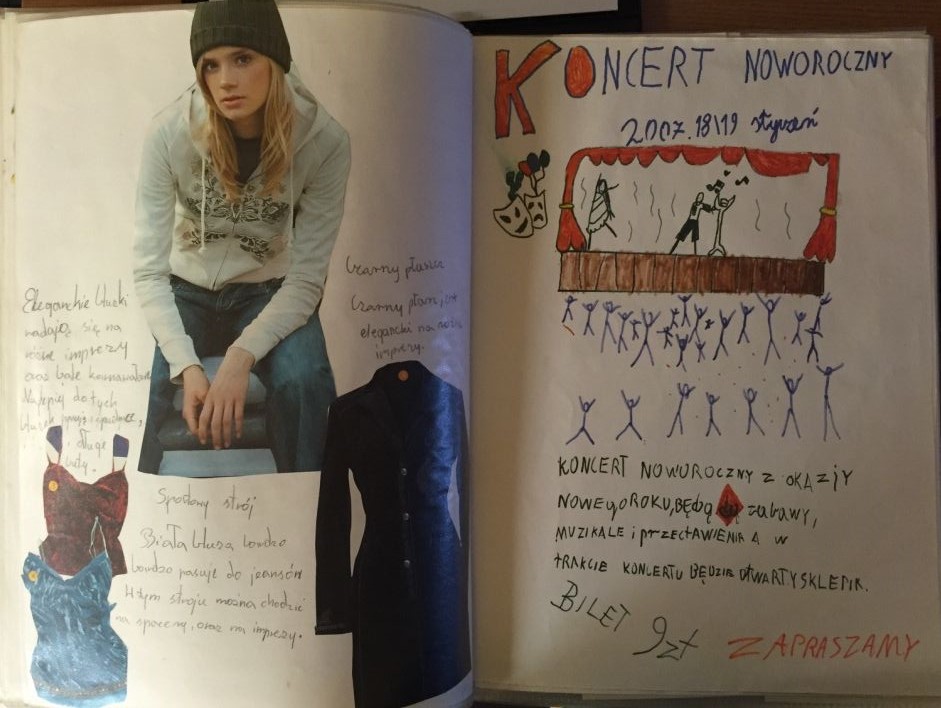 Eleganckie bluzki
nadają się na
różne imprezy
oraz bale karnawałowe
Najlepiej do tych
bluzek
i długie
buty.
Sportowy strój
Biała bluza bardzo
bardzo pasuje do jeansów
W tym stroju można chodzić
na spacery, oraz na imprezy.
Czarny płaszcz
Czarny płaszcz jest
elegancki na różne
imprezy.
KONCERT NOWOROCZNY
2007.18\19 styczeń
KONCERT NOWOROCZNY Z OKAZJY
NOWEgO ROKU, BĘDą zabawy,
MUZIKALE i przectAWIENIA A W
tRAKCIE KONCERTU BĘDZIE OtWARTY SKLEPIK.
BILET 9zł ZAPRASZAMY